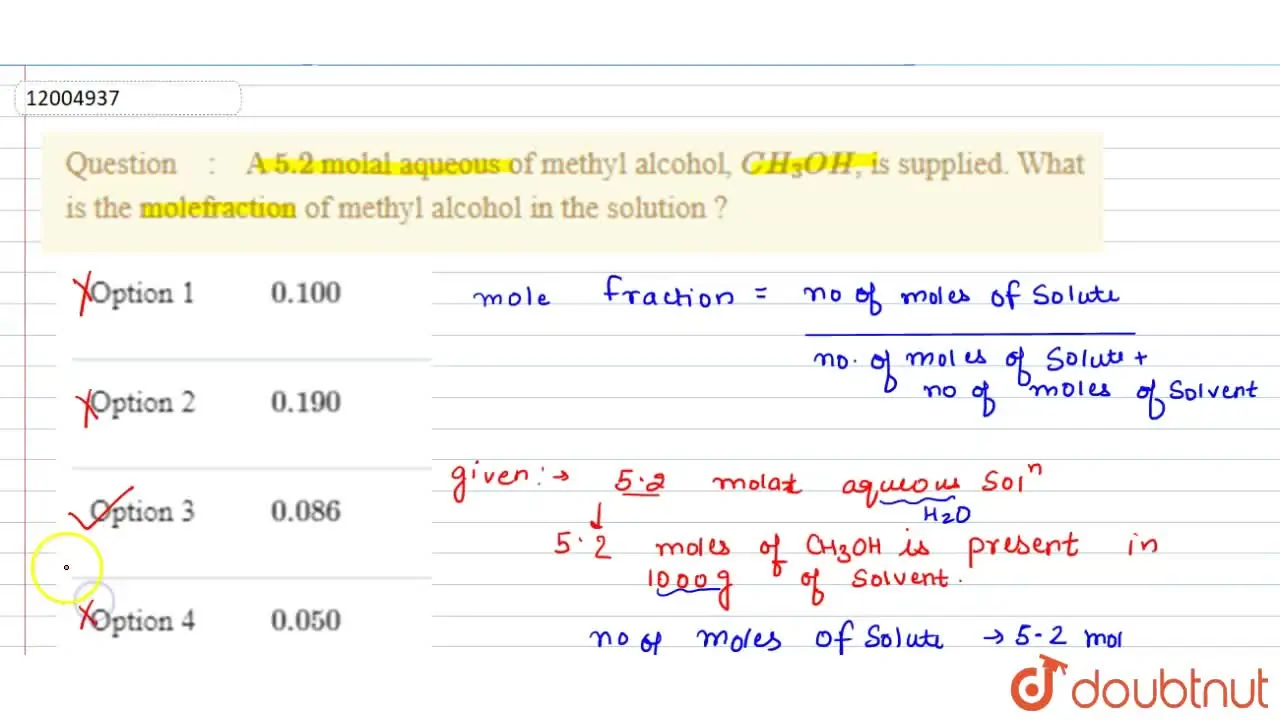 12004937
Question : A 5.2 molal aqueous of methyl alcohol, CH₃OH, is supplied. What
is the molefraction of methyl alcohol in the solution ?
Option 1 0.100
mole fraction = no of moles of Solute
no. of moles of Solute +
no of moles of Solvent
Option 2 0.190
given:→ 5.2 molal aqueous Solⁿ
H2O
Option 3 0.086
5.2 moles of CH3OH is present in
1000g of Solvent.
Option 4 0.050
no of moles of Solute → 5.2 mol
doubtnut